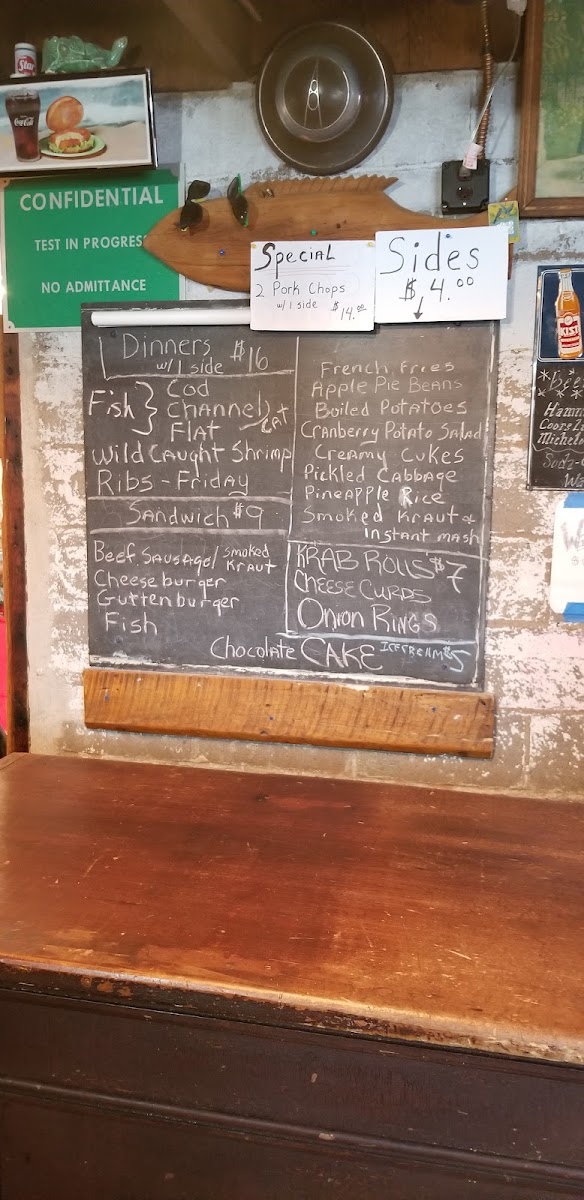 Star
Coca-Cola
CONFIDENTIAL
TEST IN PROGRESS
NO ADMITTANCE
Special
2 Pork Chops
w/1 side $14.00
Sides
$4.00
Dinners $16
w/1 side
Fish } Cod
Channel }
Flat } CAT
Wild Caught Shrimp
Ribs - Friday
Sandwich $9
Beef Sausage/ Smoked
Kraut
Cheeseburger
Guttenburger
Fish
French Fries
Apple Pie Beans
Boiled Potatoes
Cranberry Potato Salad
Creamy Cukes
Pickled Cabbage
Pineapple Rice
Smoked Kraut &
Instant mash
KRAB ROLLS $7
CHEESE CURDS
Onion RINGS
Chocolate CAKE ICECREAM $5
KIST